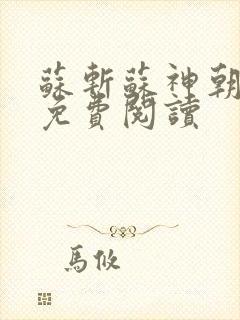 蘇斬蘇神朝
免費閱讀
馬攸